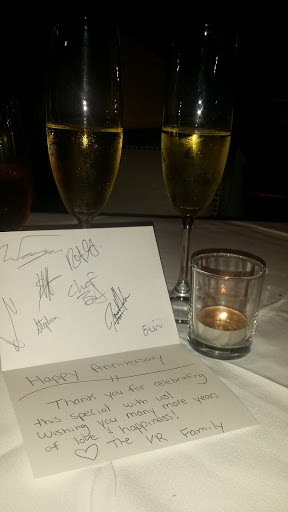 Chef
Stephen
Erin
Happy Anniversary
Thank you for celebrating
this special with us!
Wishing you many more years
of love & happiness!
♡ The VR Family